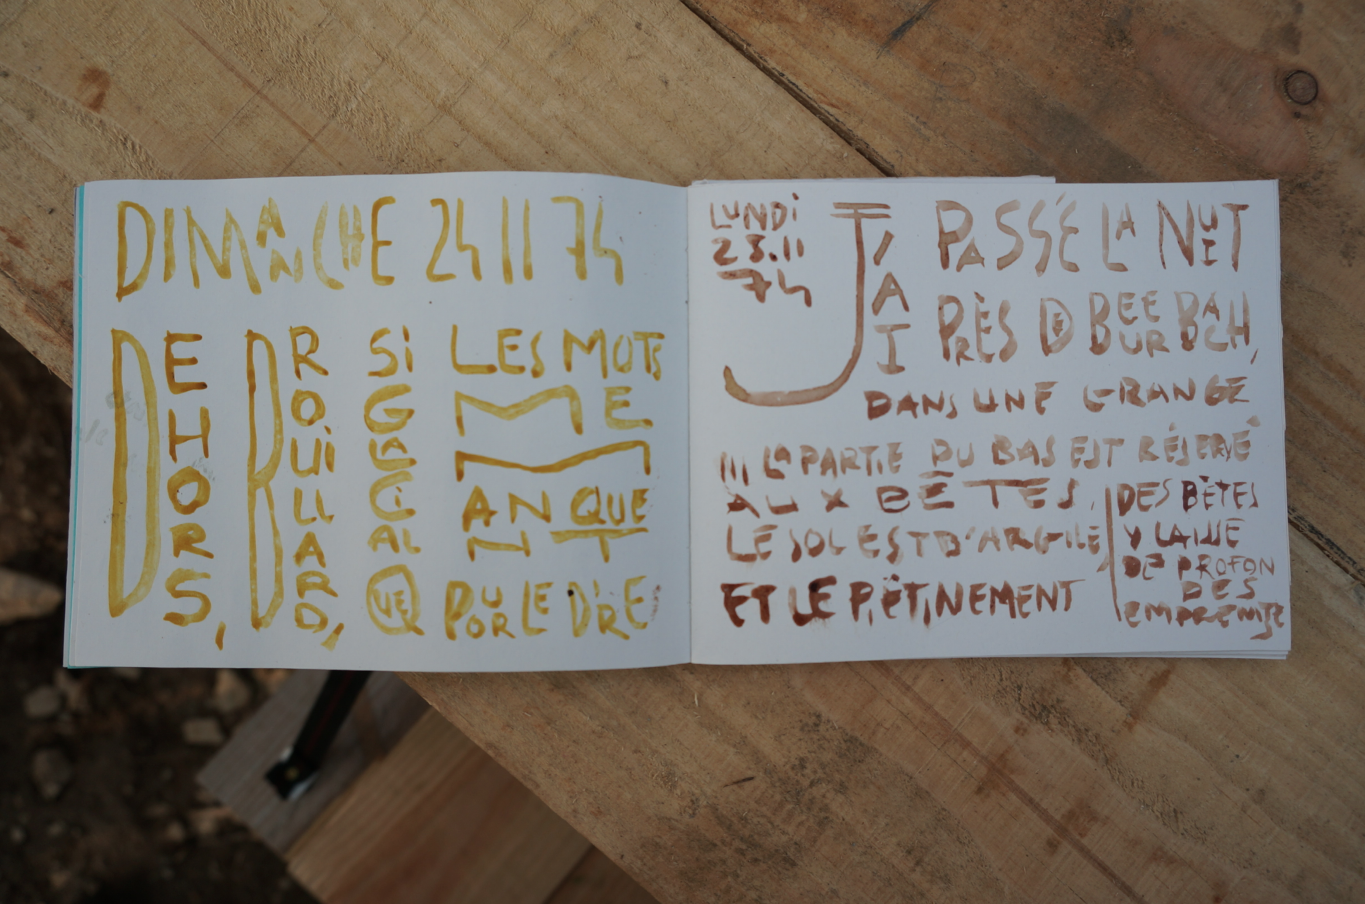 DIMANCHE 24 11 74
DEHORS,
BROUILLARD,
SI
GLACIAL
QUE
LES MOTS
ME
MANQUENT
POUR LE DIRE
LUNDI
25.11
74
J'AI
PASSÉ LA NUIT
PRÈS DE BEUERBACH,
DANS UNE GRANGE
... LA PARTIE DU BAS EST RÉSERVÉ
AUX BÊTES,
LE SOL EST D'ARGILE
ET LE PIËTINEMENT
DES BÈTES
Y LAISSE
DE PROFON
DES
EMPREINTES